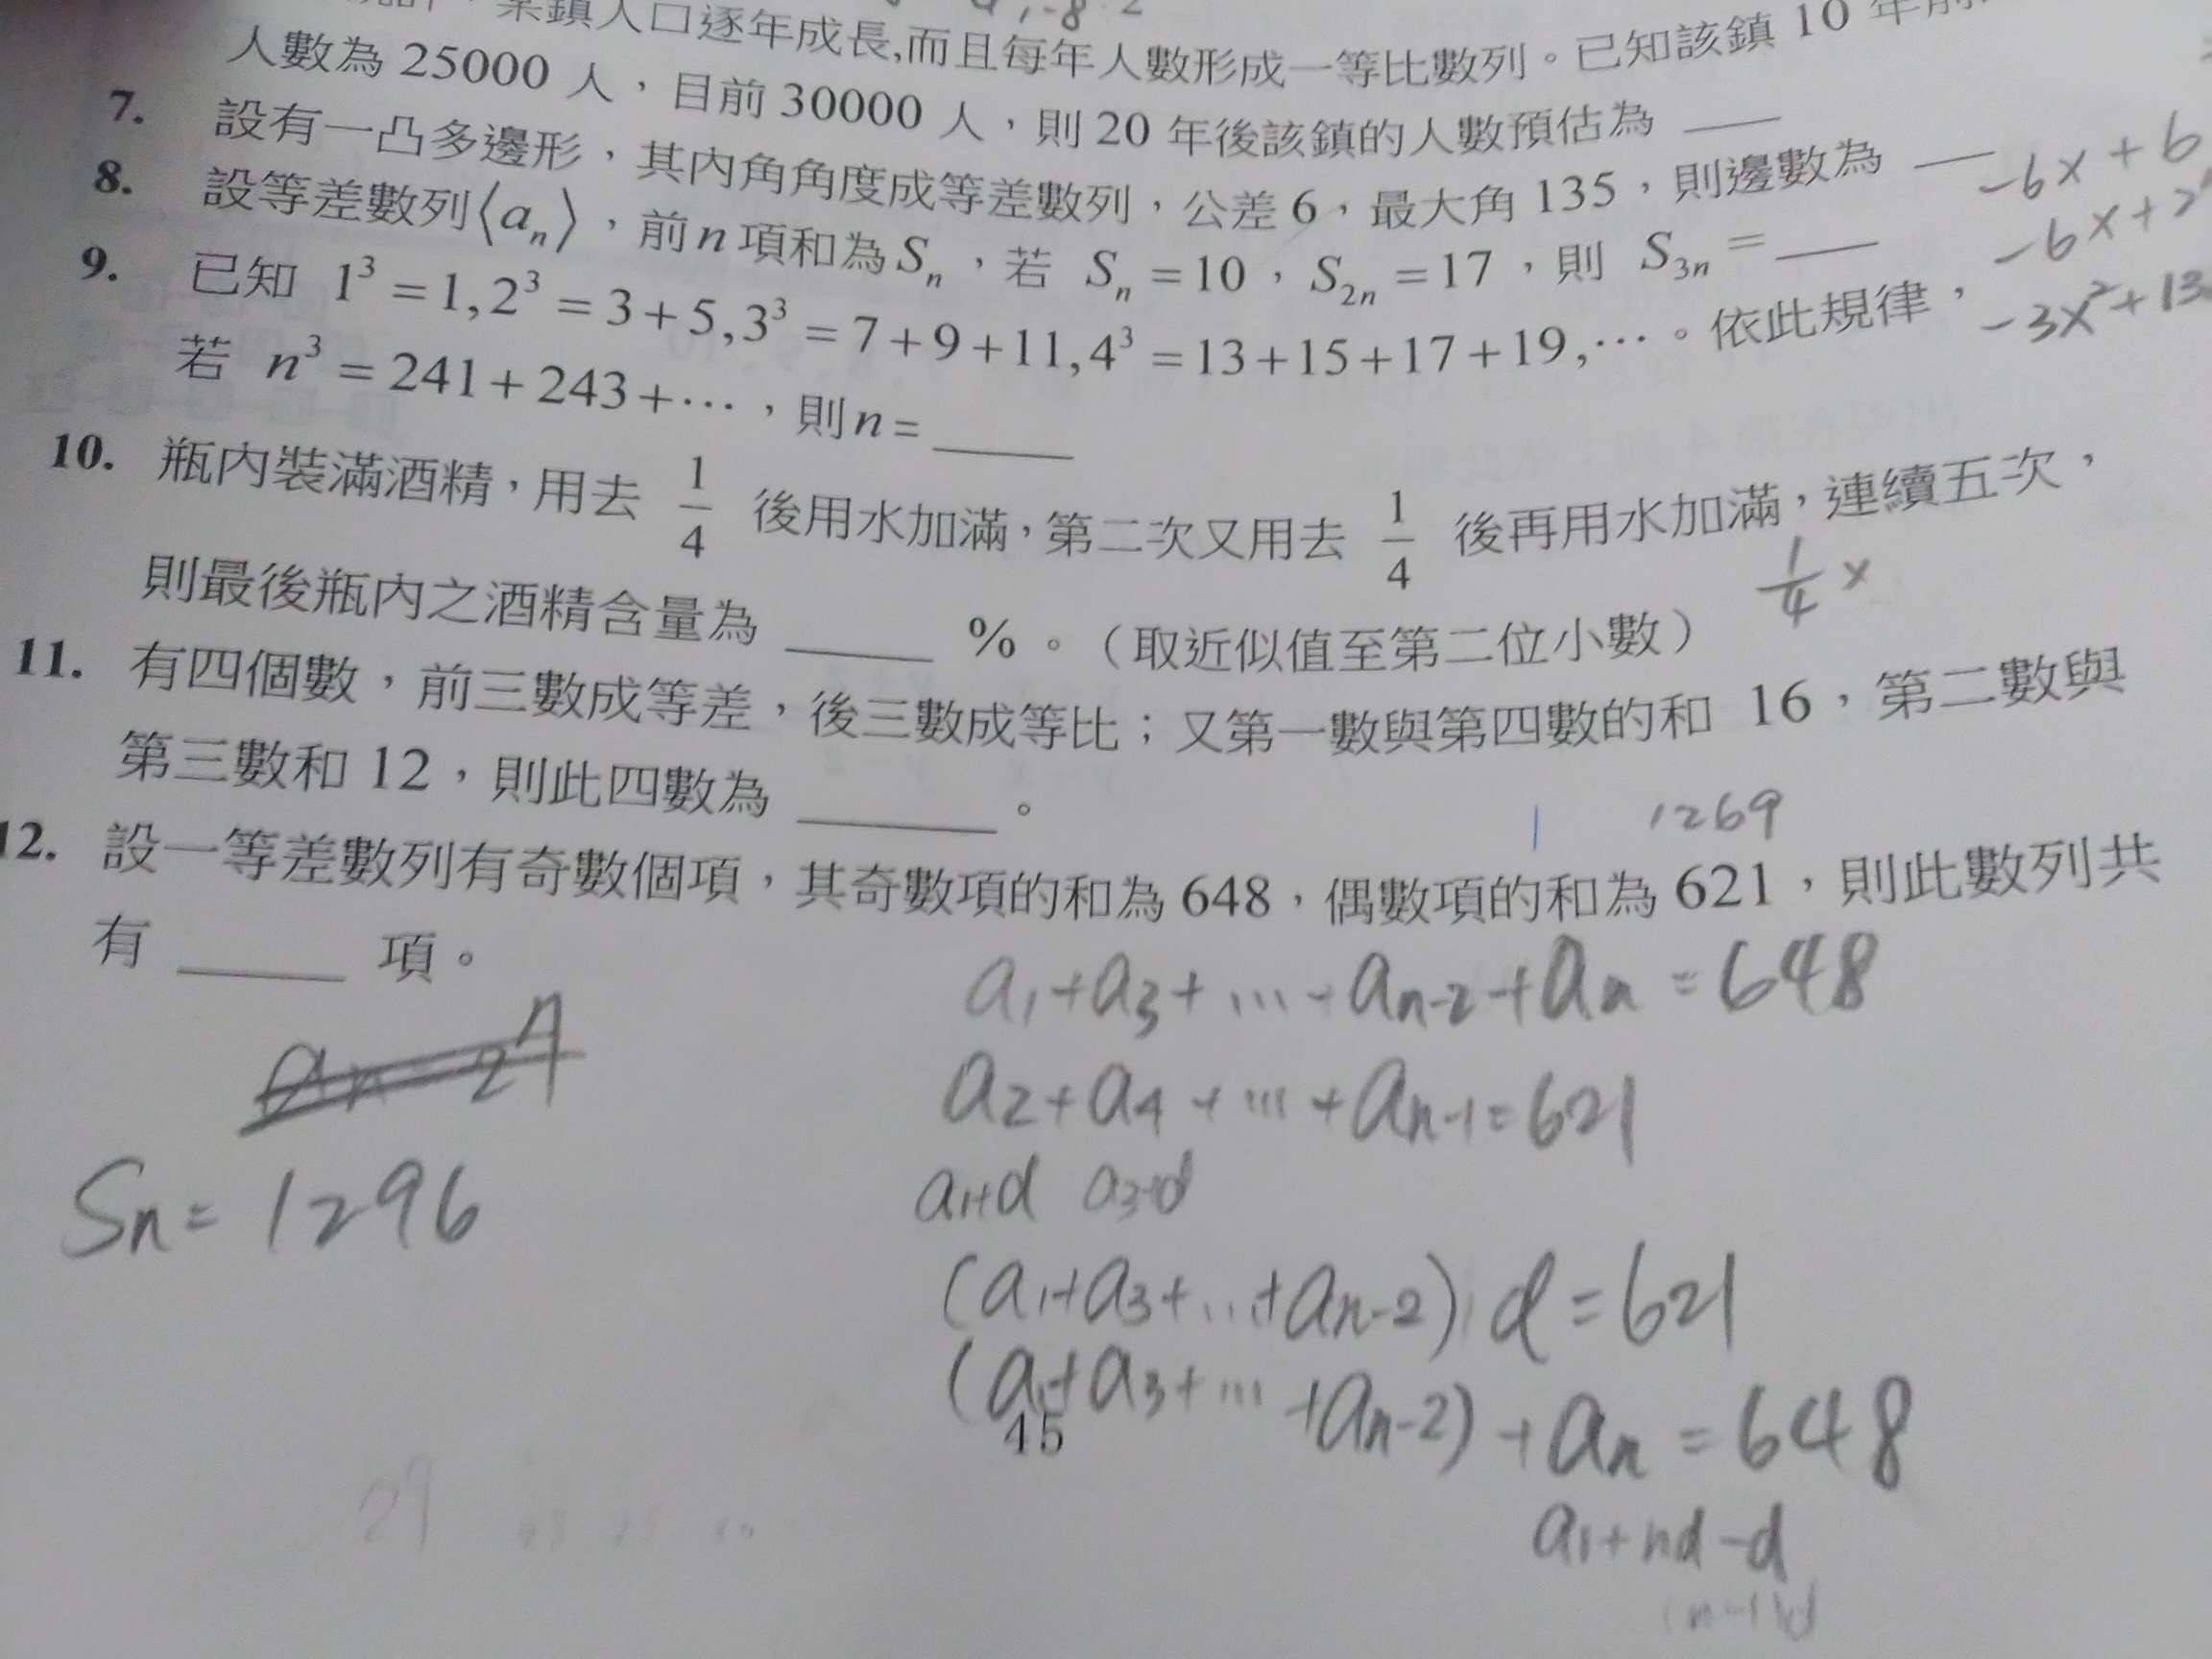 某鎮人口逐年成長,而且每年人數形成一等比數列。已知該鎮 10 年前
人數為 25000 人，目前 30000 人，則 20 年後該鎮的人數預估為 ___
7. 設有一凸多邊形，其內角角度成等差數列，公差 6，最大角 135，則邊數為 ___
-6x+6
8. 設等差數列⟨aₙ⟩，前 n 項和為 Sₙ，若 Sₙ = 10，S₂ₙ = 17，則 S₃ₙ = ___
-6x+2
9. 已知 1³ = 1, 2³ = 3 + 5, 3³ = 7 + 9 + 11, 4³ = 13 + 15 + 17 + 19, ⋯。依此規律，
-3x²+13
若 n³ = 241 + 243 + ⋯，則 n = ____
10. 瓶內裝滿酒精，用去 1/4 後用水加滿，第二次又用去 1/4 後再用水加滿，連續五次，
1/4 x
則最後瓶內之酒精含量為 ____ %。（取近似值至第二位小數）
11. 有四個數，前三數成等差，後三數成等比；又第一數與第四數的和 16，第二數與
第三數和 12，則此四數為 ____。
1269
12. 設一等差數列有奇數個項，其奇數項的和為 648，偶數項的和為 621，則此數列共
有 ____ 項。
a₁+a₃+...+aₙ₋₂+aₙ=648
a₂+a₄+...+aₙ₋₁=621
Sₙ=1296
a₁+d a₃+d
(a₁+a₃+...+aₙ₋₂) d=621
(a₁+a₃+...+aₙ₋₂)+aₙ=648
45
a₁+nd-d
(n-1)d